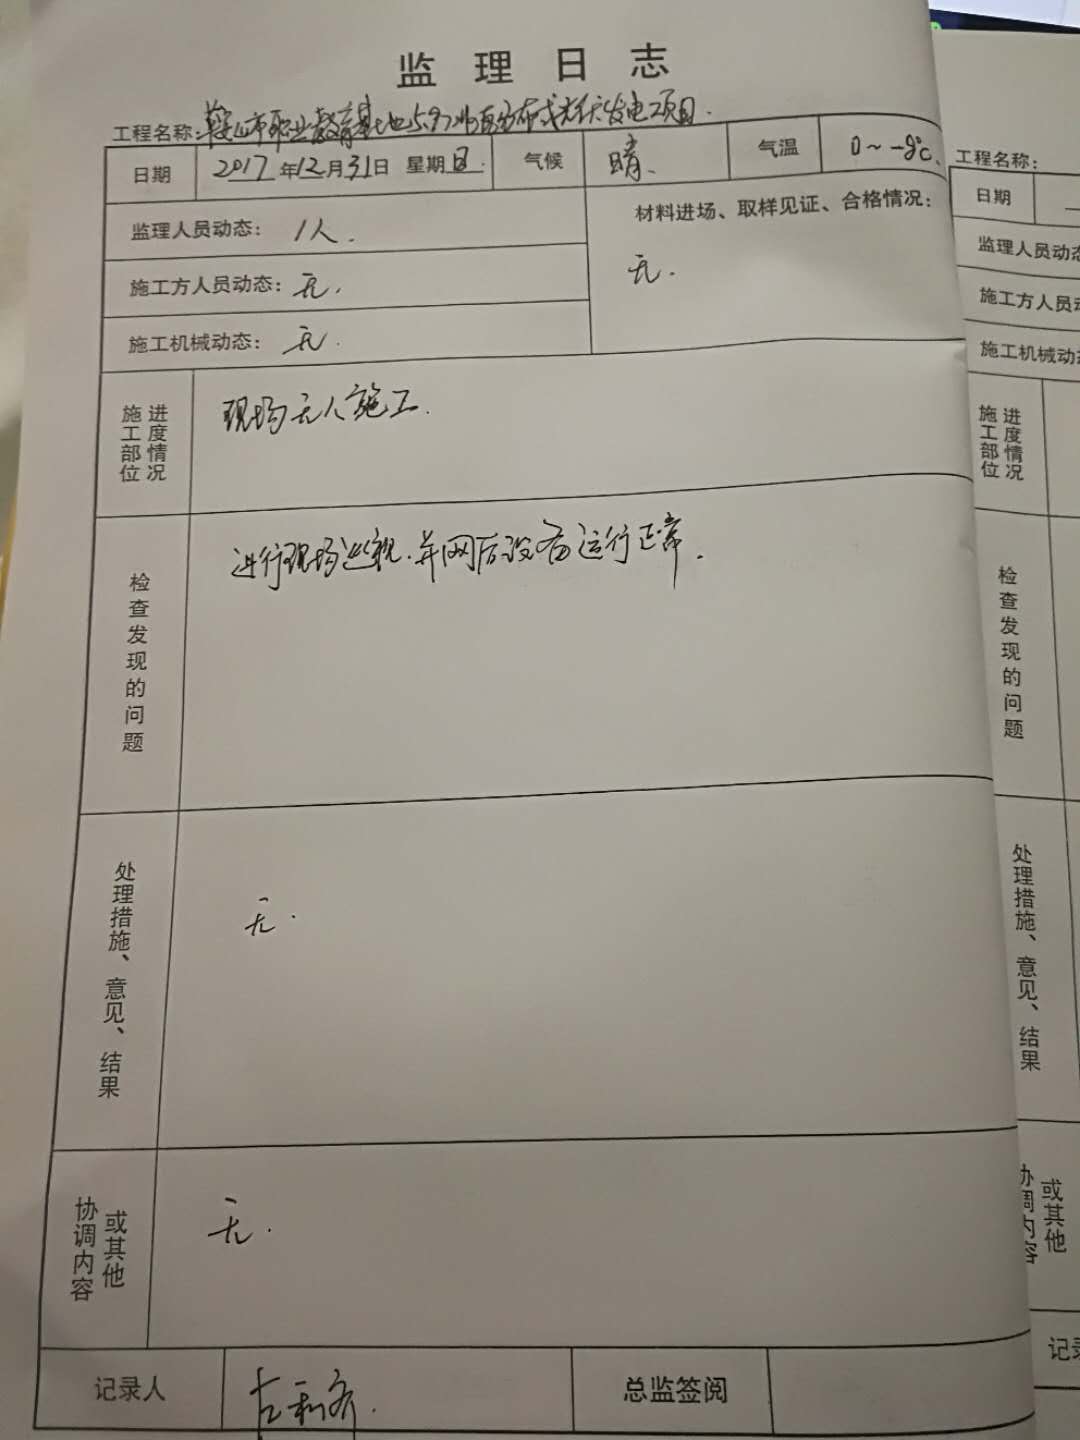 监理日志
工程名称：鞍山市职业教育基地5.97MW分布式光伏发电项目.
日期 2017年12月31日 星期日. 气候 晴、 气温 0~-9℃、
监理人员动态： 1人.
材料进场、取样见证、合格情况：
无.
施工方人员动态： 无.
施工机械动态： 无.
施工部位 进度情况 现场无人施工.
检查发现的问题 进行现场巡视.并网后设备运行正常.
处理措施、意见、结果 无.
协调内容 或其他 无.
记录人 总监签阅
工程名称：
日期
监理人员动态
施工方人员动
施工机械动态
施工部位 进度情况
检查发现的问题
处理措施、意见、结果
协调内容 或其他
记录